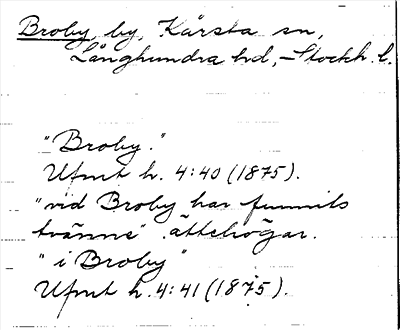 Broby, by, Kårsta sn,
Långhundra hd, – Stockh. l.
"Broby."
Ufmt h. 4:40 (1875).
"vid Broby har funnits
tvänne" ättehögar.
"i Broby"
Ufmt h. 4:41 (1875).